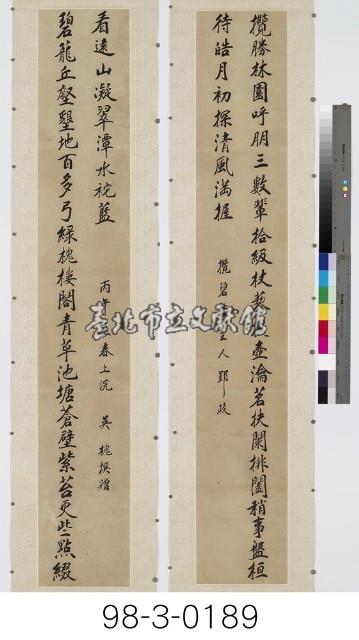 攬勝林園呼朋三數輩拾級杖藜壺瀹茗扶闌排闥稍事盤桓
待皓月初探清風滿握
攬碧主人郢政
碧籠丘壑墾地百多弓綠槐樓閣青草池塘蒼壁紫苔更些點綴
看遠山凝翠潭水拕藍
丙午春上浣 吳槐撰贈
臺北市立文獻館
98-3-0189